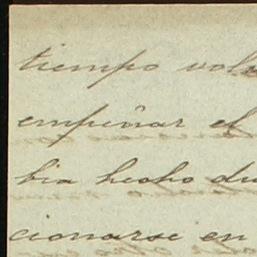 tiempo vol
empeñar el
bia hecho du
cionarse en